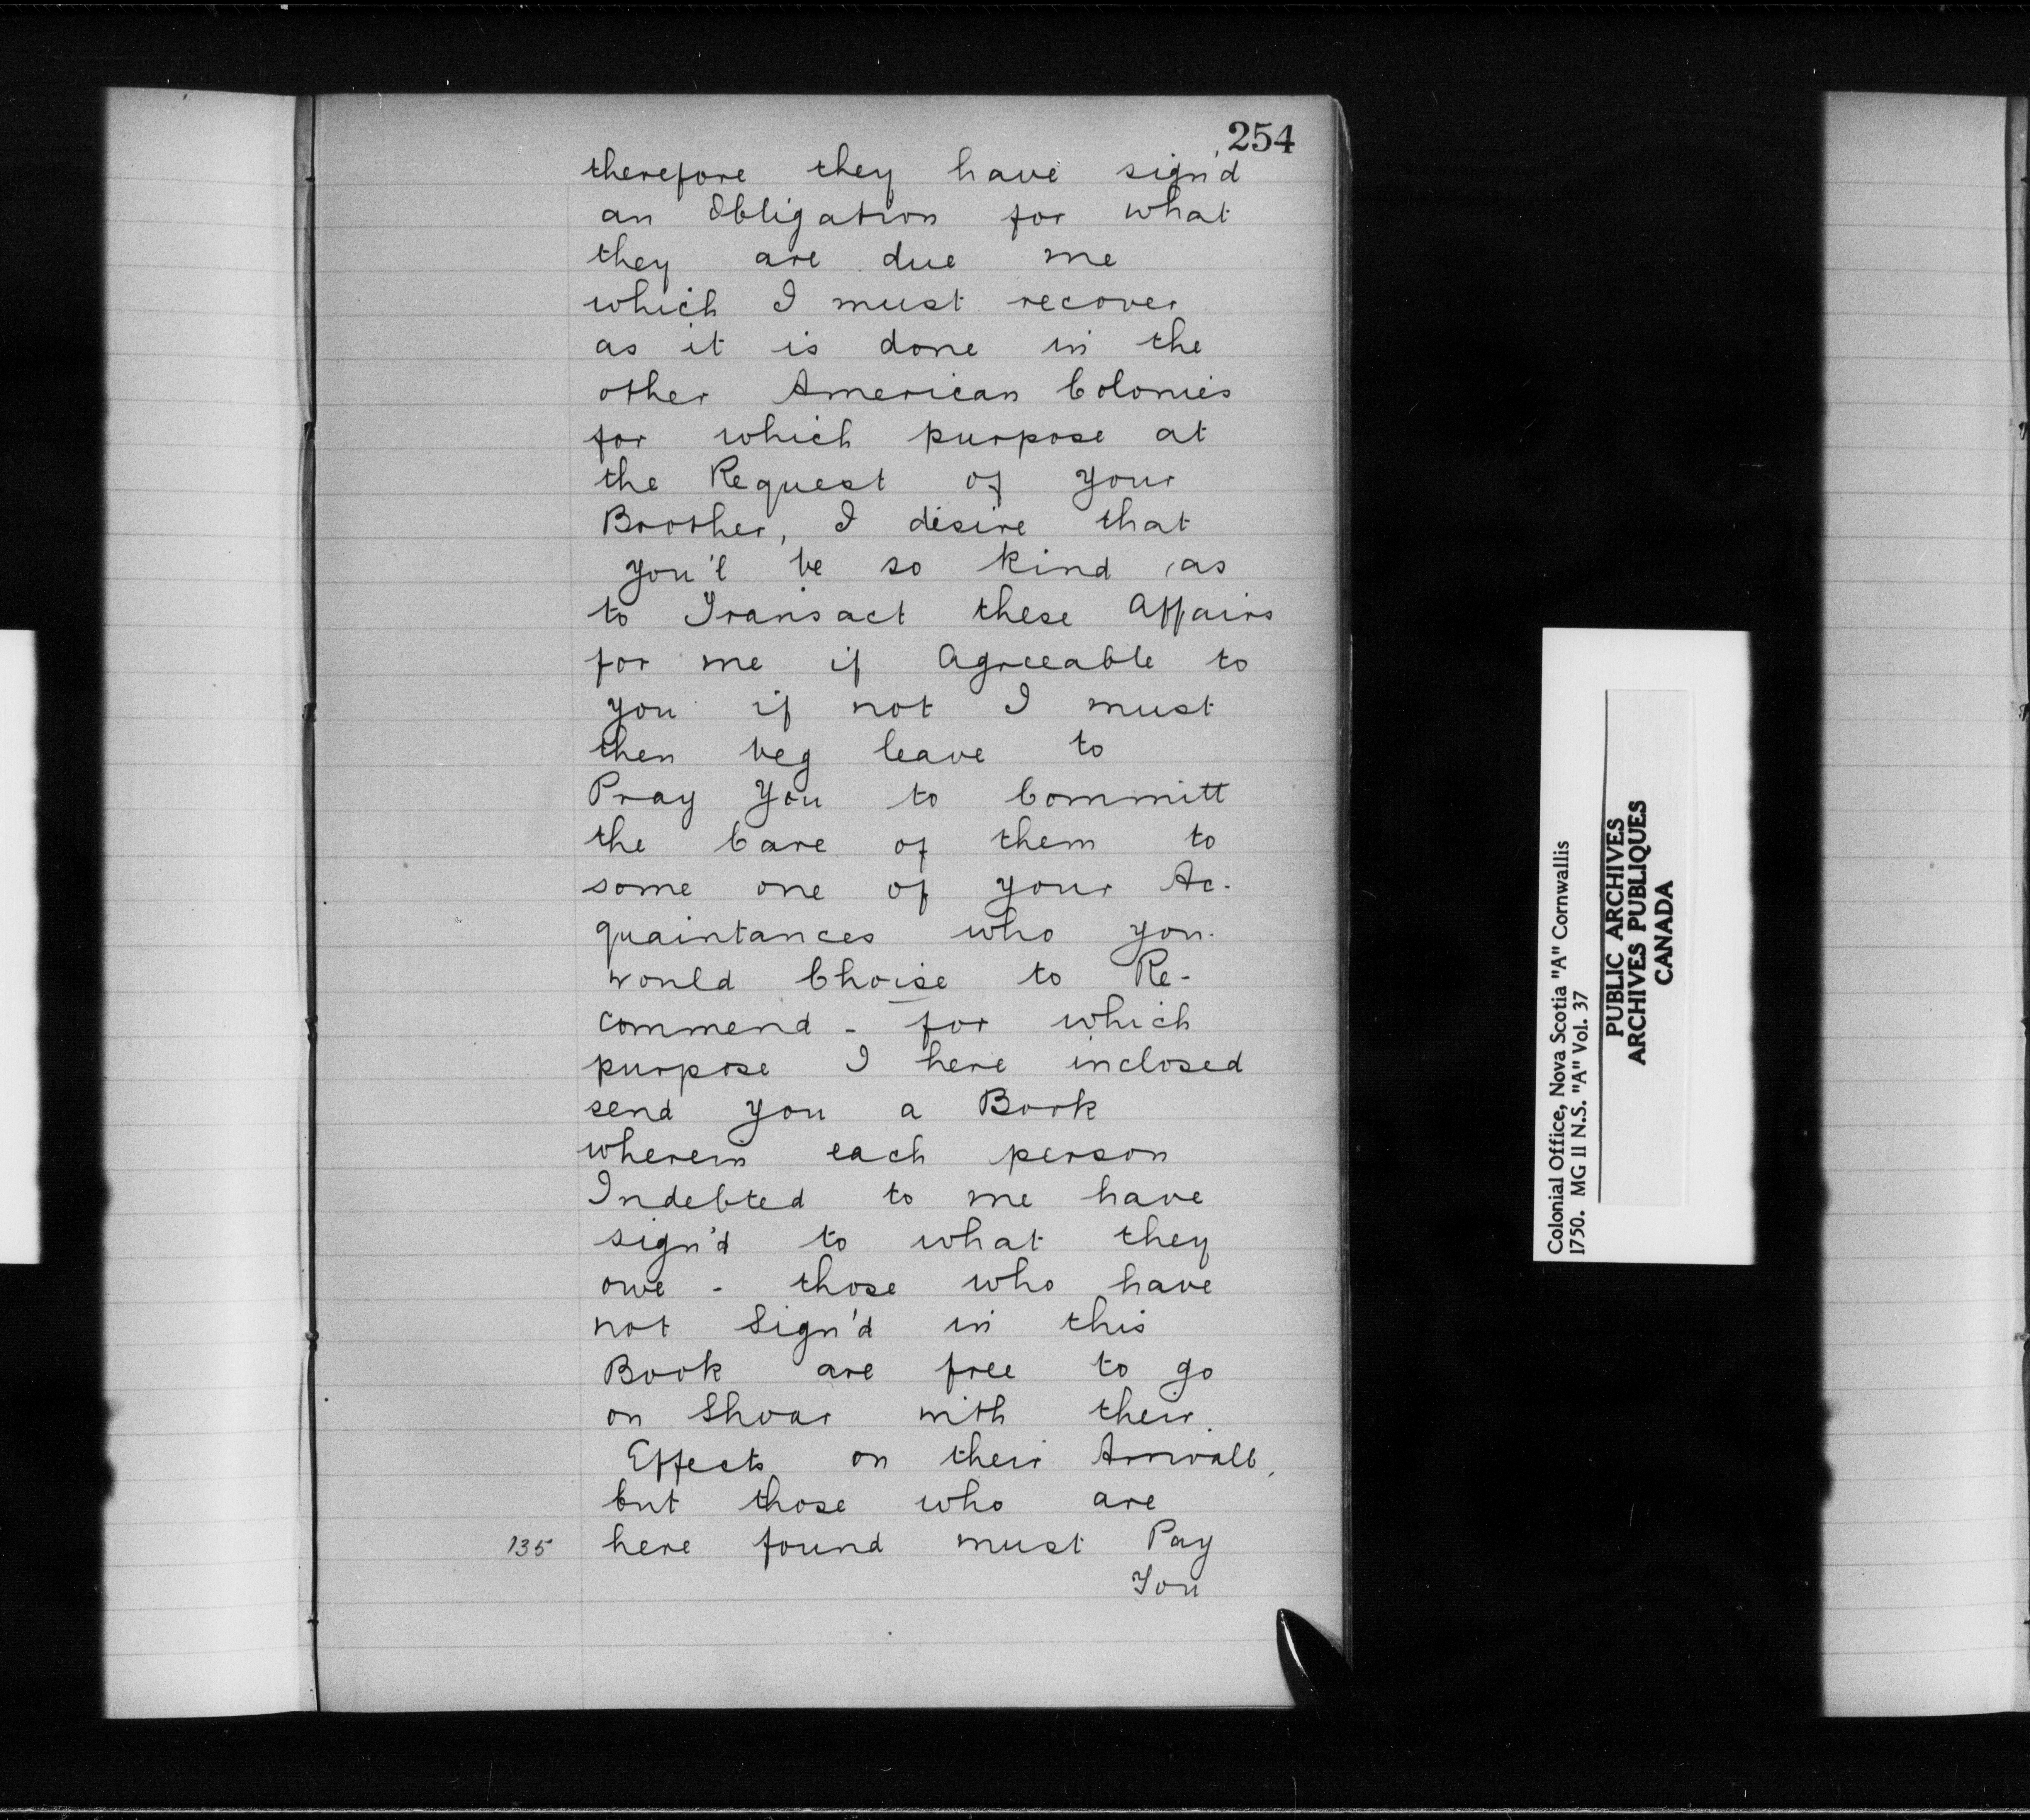 254
therefore they have sign'd
an Obligation for what
they are due me
which I must recover
as it is done in the
other American Colonies
for which purpose at
the Request of your
Brother, I desire that
you'l be so kind as
to Transact these Affairs
for me if Agreeable to
you if not I must
then beg leave to
Pray You to Committ
the Care of them to
some one of your Ac-
quaintances who you
would Choise to Re-
commend - for which
purpose I here inclosed
send you a Book
wherein each person
Indebted to me have
sign'd to what they
owe - those who have
not Sign'd in this
Book are free to go
on Shoar with their
Effects on their Arrivall,
but those who are
135 here found must Pay
You
Colonial Office, Nova Scotia "A" Cornwallis
1750. MG II N.S. "A" Vol. 37
PUBLIC ARCHIVES
ARCHIVES PUBLIQUES
CANADA